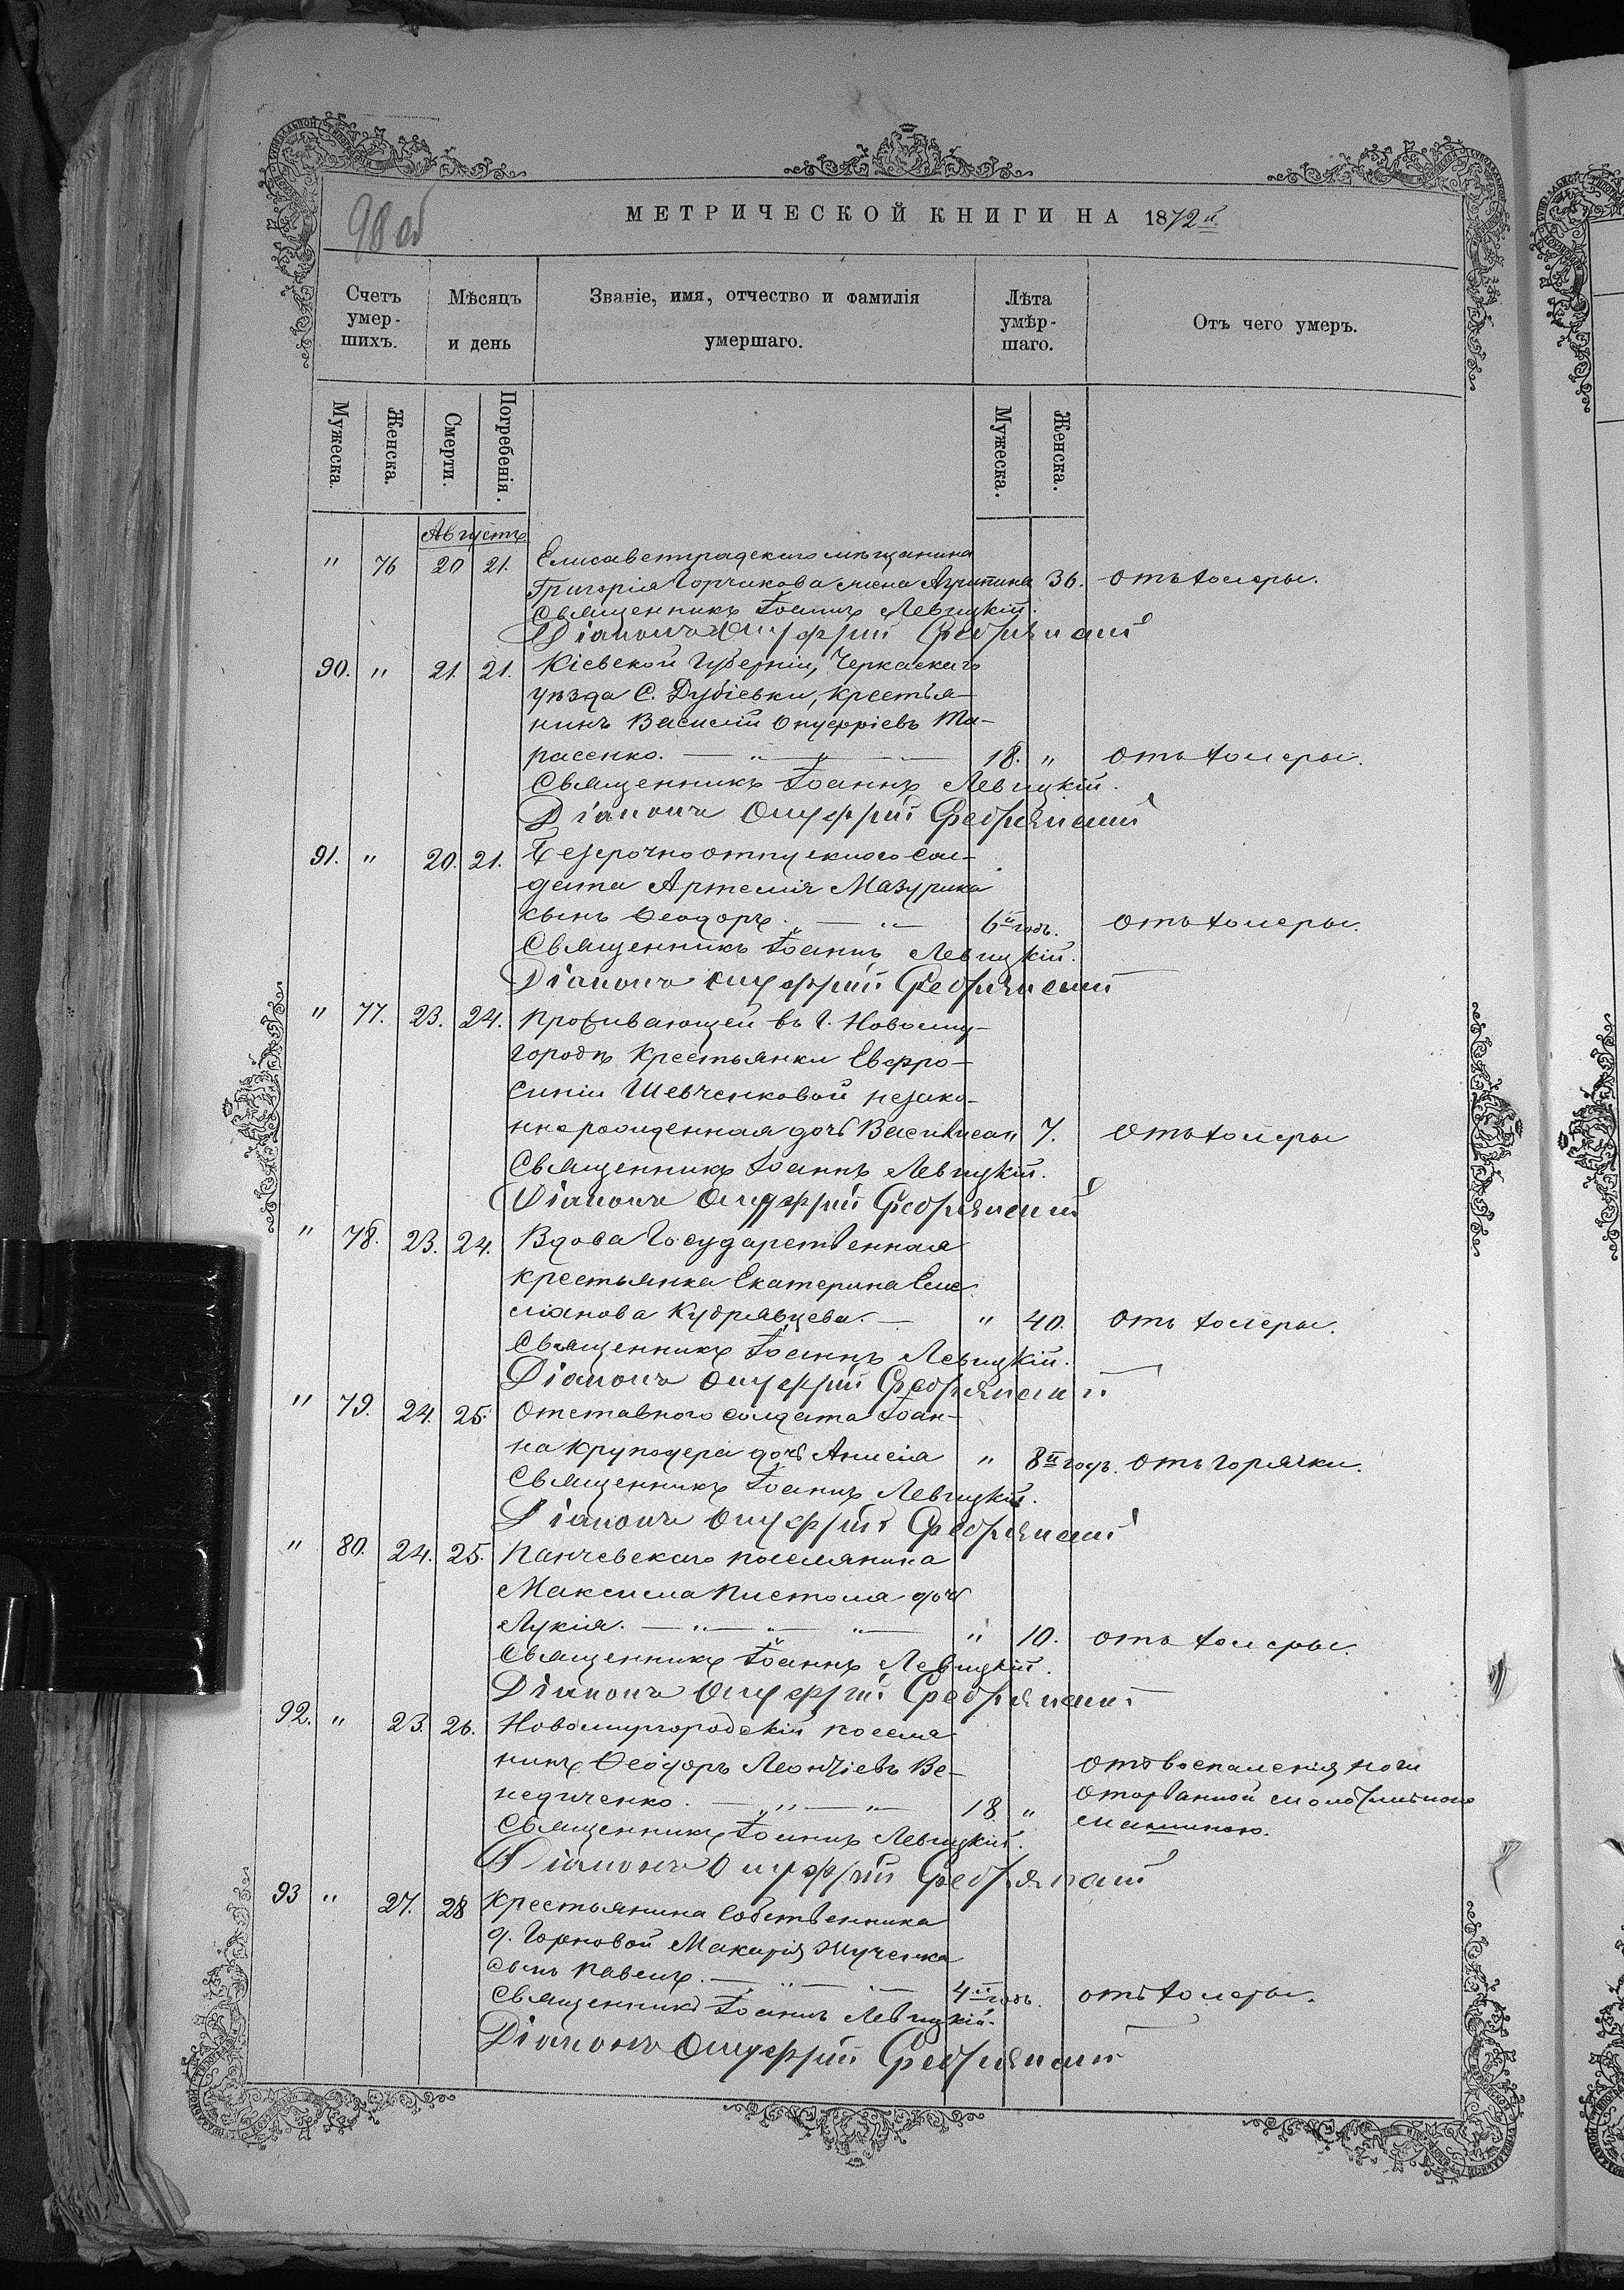 98 об
МЕТРИЧЕСКОЙ КНИГИ НА 1872й.
Счетъ умер- шихъ.
Мѣсяцъ и день
Званіе, имя, отчество и фамилія умершаго.
Лѣта умѣр- шаго.
Отъ чего умеръ.
Мужеска.
Женска.
Смерти.
Погребенія.
Мужеска.
Женска.
Августъ
" 76 20 21. Елисаветградскаго мѣщанина
Григорія Горчикова жена Агрипина 36. отъ холеры.
Священникъ Іоаннъ Левицкій.
Діаконъ Онуфрій
90. " 21. 21. Кіевской Губерніи, Черкаскаго
уѣзда С. Дубіевки, крестья-
нинъ Василій Онуфріевъ Та-
расенко. 18. " отъ холеры.
Священникъ Іоаннъ Левицкій.
Діаконъ Онуфрій
91. " 20. 21. Безсрочно отпускного сол-
дата Артемія Мазурика
сынъ Ѳеодоръ. 6й годъ. отъ холеры.
Священникъ Іоаннъ Левицкій.
Діаконъ Онуфрій
" 77. 23. 24. Проживающей въ г. Новомир-
городѣ Крестьянки Евфро-
синіи Шевченковой незако-
ннорожденная дочь Василиса 7. отъ холеры
Священникъ Іоаннъ Левицкій.
Діаконъ Онуфрій
" 78. 23. 24. Вдова Государственная
крестьянка Екатерина Еме-
ліанова Кудрявцева. " 40. отъ холеры.
Священникъ Іоаннъ Левицкій.
Діаконъ Онуфрій
" 79. 24. 25. Отставного солдата Іоан-
на Круподера дочь Анисія " 8й годъ. отъ горячки.
Священникъ Іоаннъ Левицкій.
Діаконъ Онуфрій
" 80. 24. 25. Панчевскаго поселянина
Максима Пистоля дочь
Лукія. " 10. отъ холеры.
Священникъ Іоаннъ Левицкій.
Діаконъ Онуфрій
92. " 23. 26. Новомиргородскій поселя-
нинъ Ѳеодоръ Леонтіевъ Ве-
недиченко. 18 " отъ воспаленія ноги
оторванной молотильною
машиною.
Священникъ Іоаннъ Левицкій.
Діаконъ Онуфрій
93 " 27. 28 Крестьянина Собственника
д. Горновой Макарія Шученка
сынъ Павелъ. 4й годъ. отъ холеры.
Священникъ Іоаннъ Левицкій.
Діаконъ Онуфрій